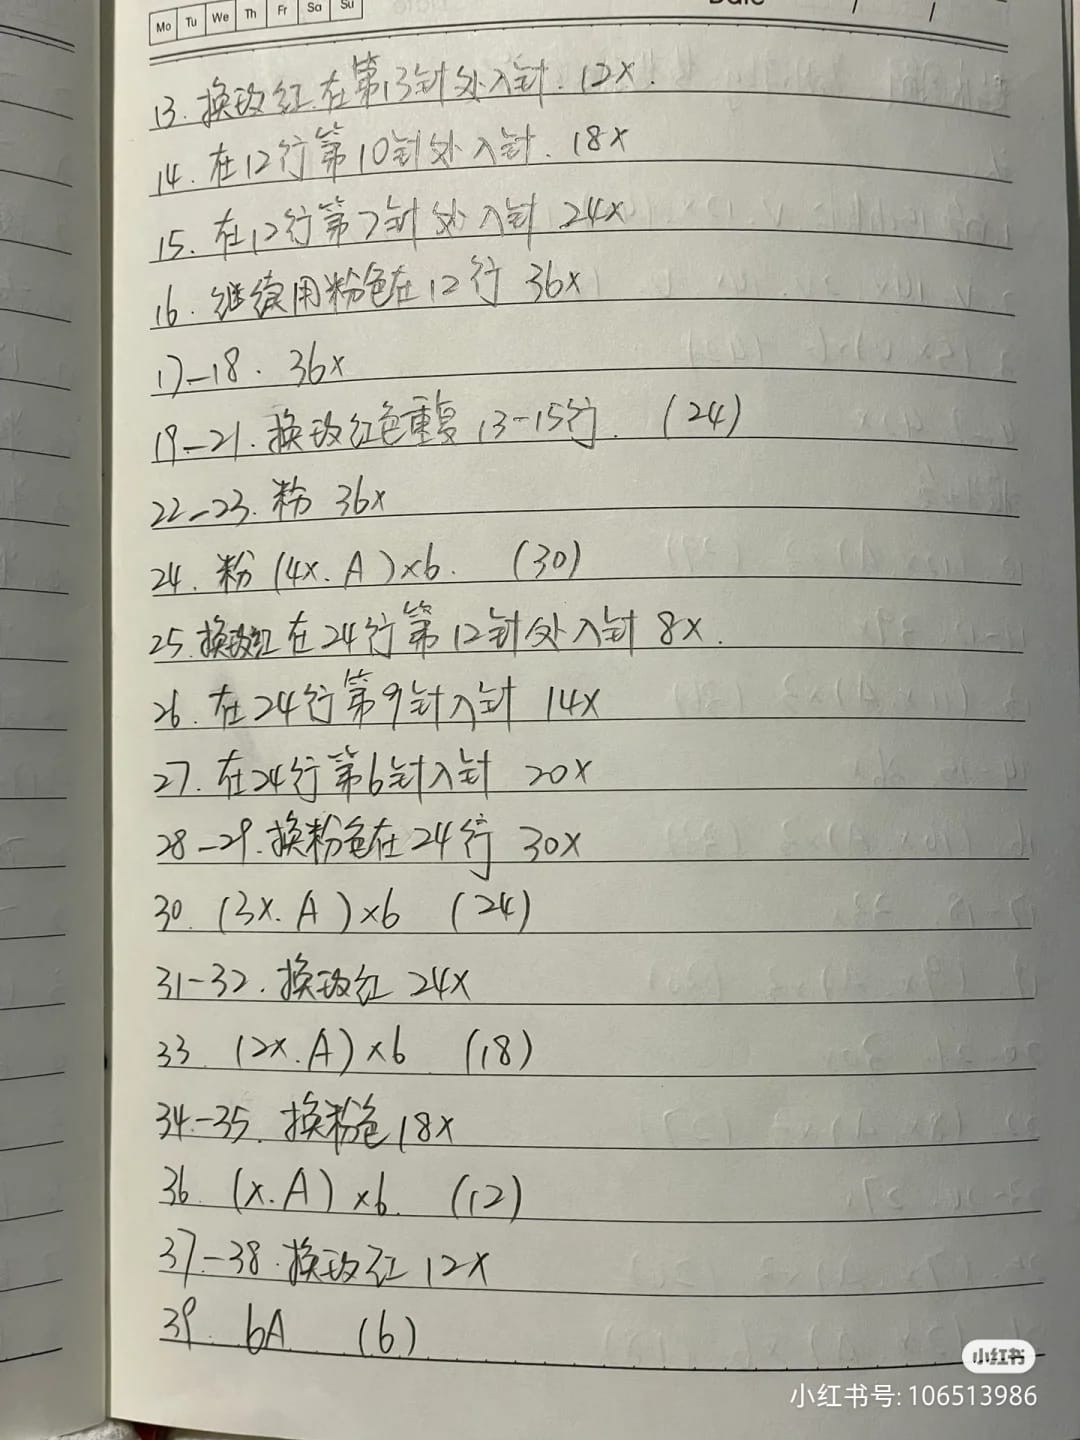 Mo Tu We Th Fr Sa Su
Date / /
13. 换玫红.在第13针处入针. 12x.
14. 在12行第10针处入针. 18x
15. 在12行第7针处入针 24x
16. 继续用粉色在12行 36x
17-18. 36x
19-21. 换玫红色重复13-15行. (24)
22-23. 粉 36x
24. 粉 (4x. A)×6. (30)
25. 换玫红在24行第12针处入针 8x.
26. 在24行第9针入针 14x
27. 在24行第6针入针 20x
28-29. 换粉色在24行 30x
30. (3x. A)×6 (24)
31-32. 换玫红 24x
33. (2x. A)×6 (18)
34-35. 换粉色 18x
36. (x. A)×6. (12)
37-38. 换玫红 12x
39. 6A (6)
小红书
小红书号: 106513986